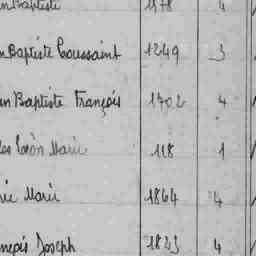 n Baptiste 1178 4
n Baptiste Toussaint 1249 3
an Baptiste François 1702 4
les Léon Marie 118 1
rie Marie 1864 4
nçois Joseph 1823 4